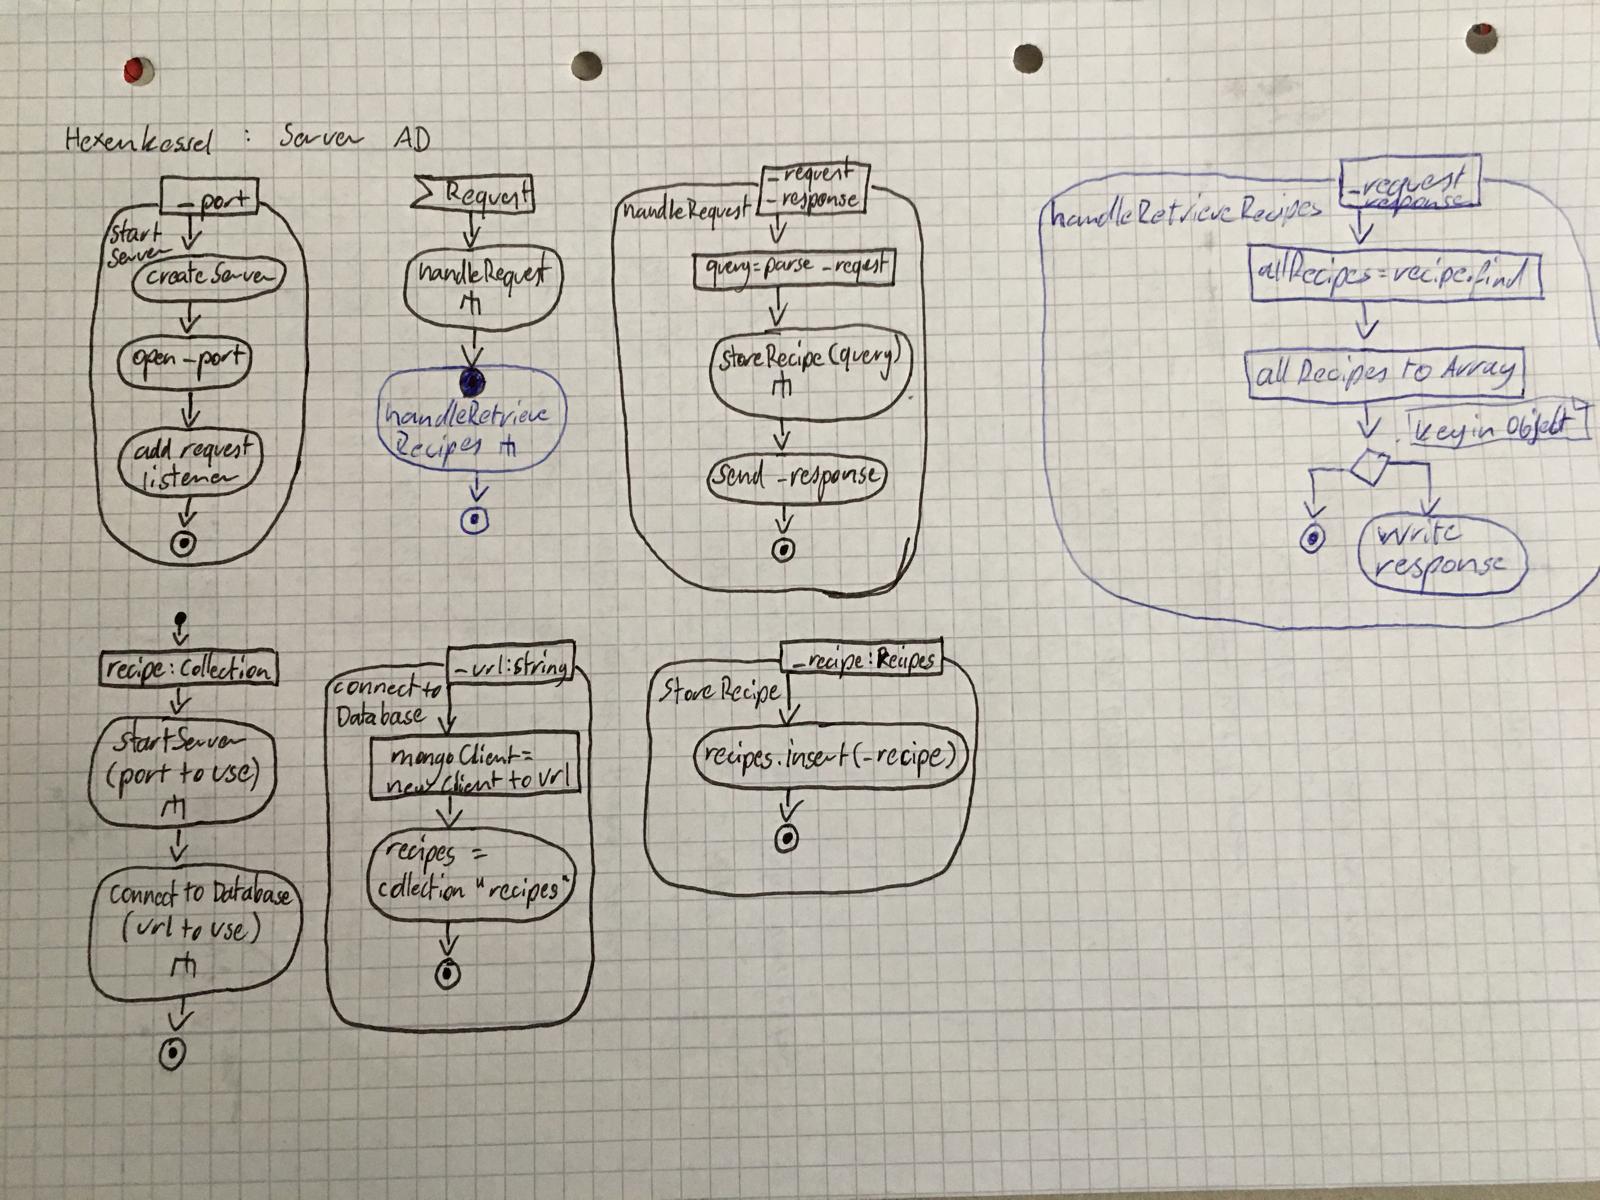 Hexenkessel : Server AD
_port
start
Server
create Server
open _port
add request
listener
Request
handleRequest
handleRetrieve
Recipes
_request
_response
handleRequest
query=parse _reqest
storeRecipe(query)
send _response
_request
_response
handleRetrieveRecipes
allRecipes=recipe.find
all Recipes to Array
key in Object
write
response
recipe:Collection
startServer
(port to use)
connect to Database
(url to use)
_url:string
connect to
Database
mongoClient=
new Client to url
recipes =
collection "recipes"
_recipe:Recipes
Store Recipe
recipes.insert(_recipe)